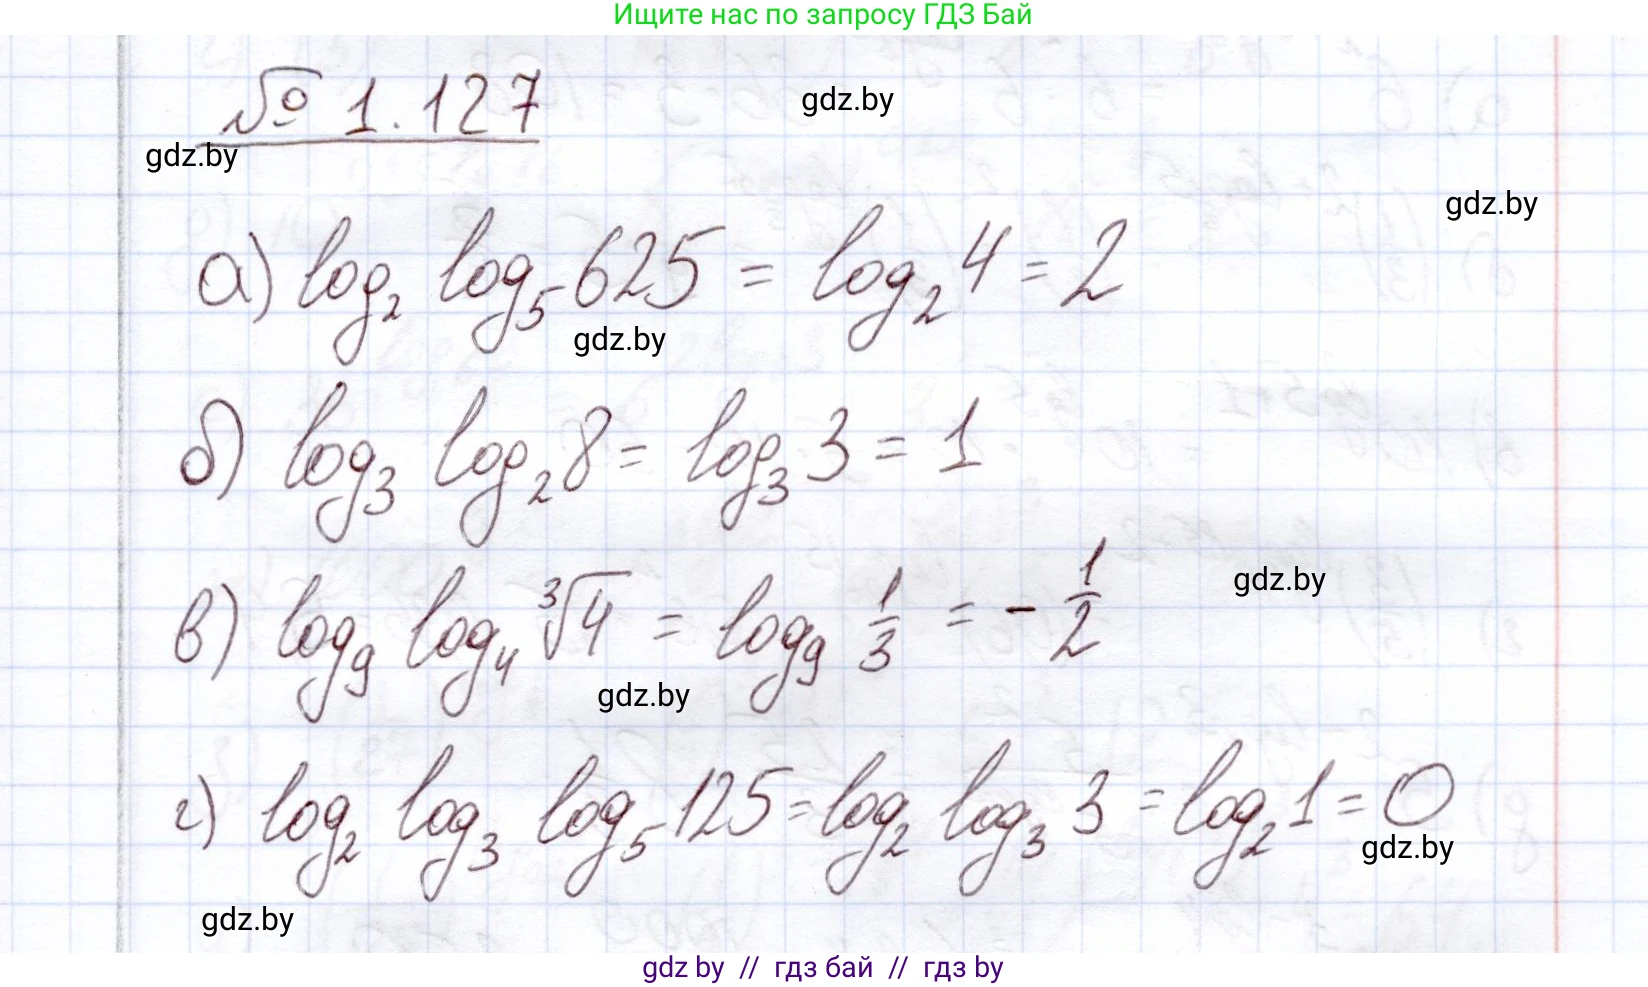 Ищите нас по запросу ГДЗ Бай
№ 1.127
gdz.by
gdz.by
gdz.by
а) log₂ log₅ 625 = log₂ 4 = 2
gdz.by
б) log₃ log₂ 8 = log₃ 3 = 1
gdz.by
в) log₉ log₄ ∛4 = log₉ 1/3 = - 1/2
gdz.by
г) log₂ log₃ log₅ 125 = log₂ log₃ 3 = log₂ 1 = 0
gdz.by
gdz.by
gdz by // гдз бай // гдз by